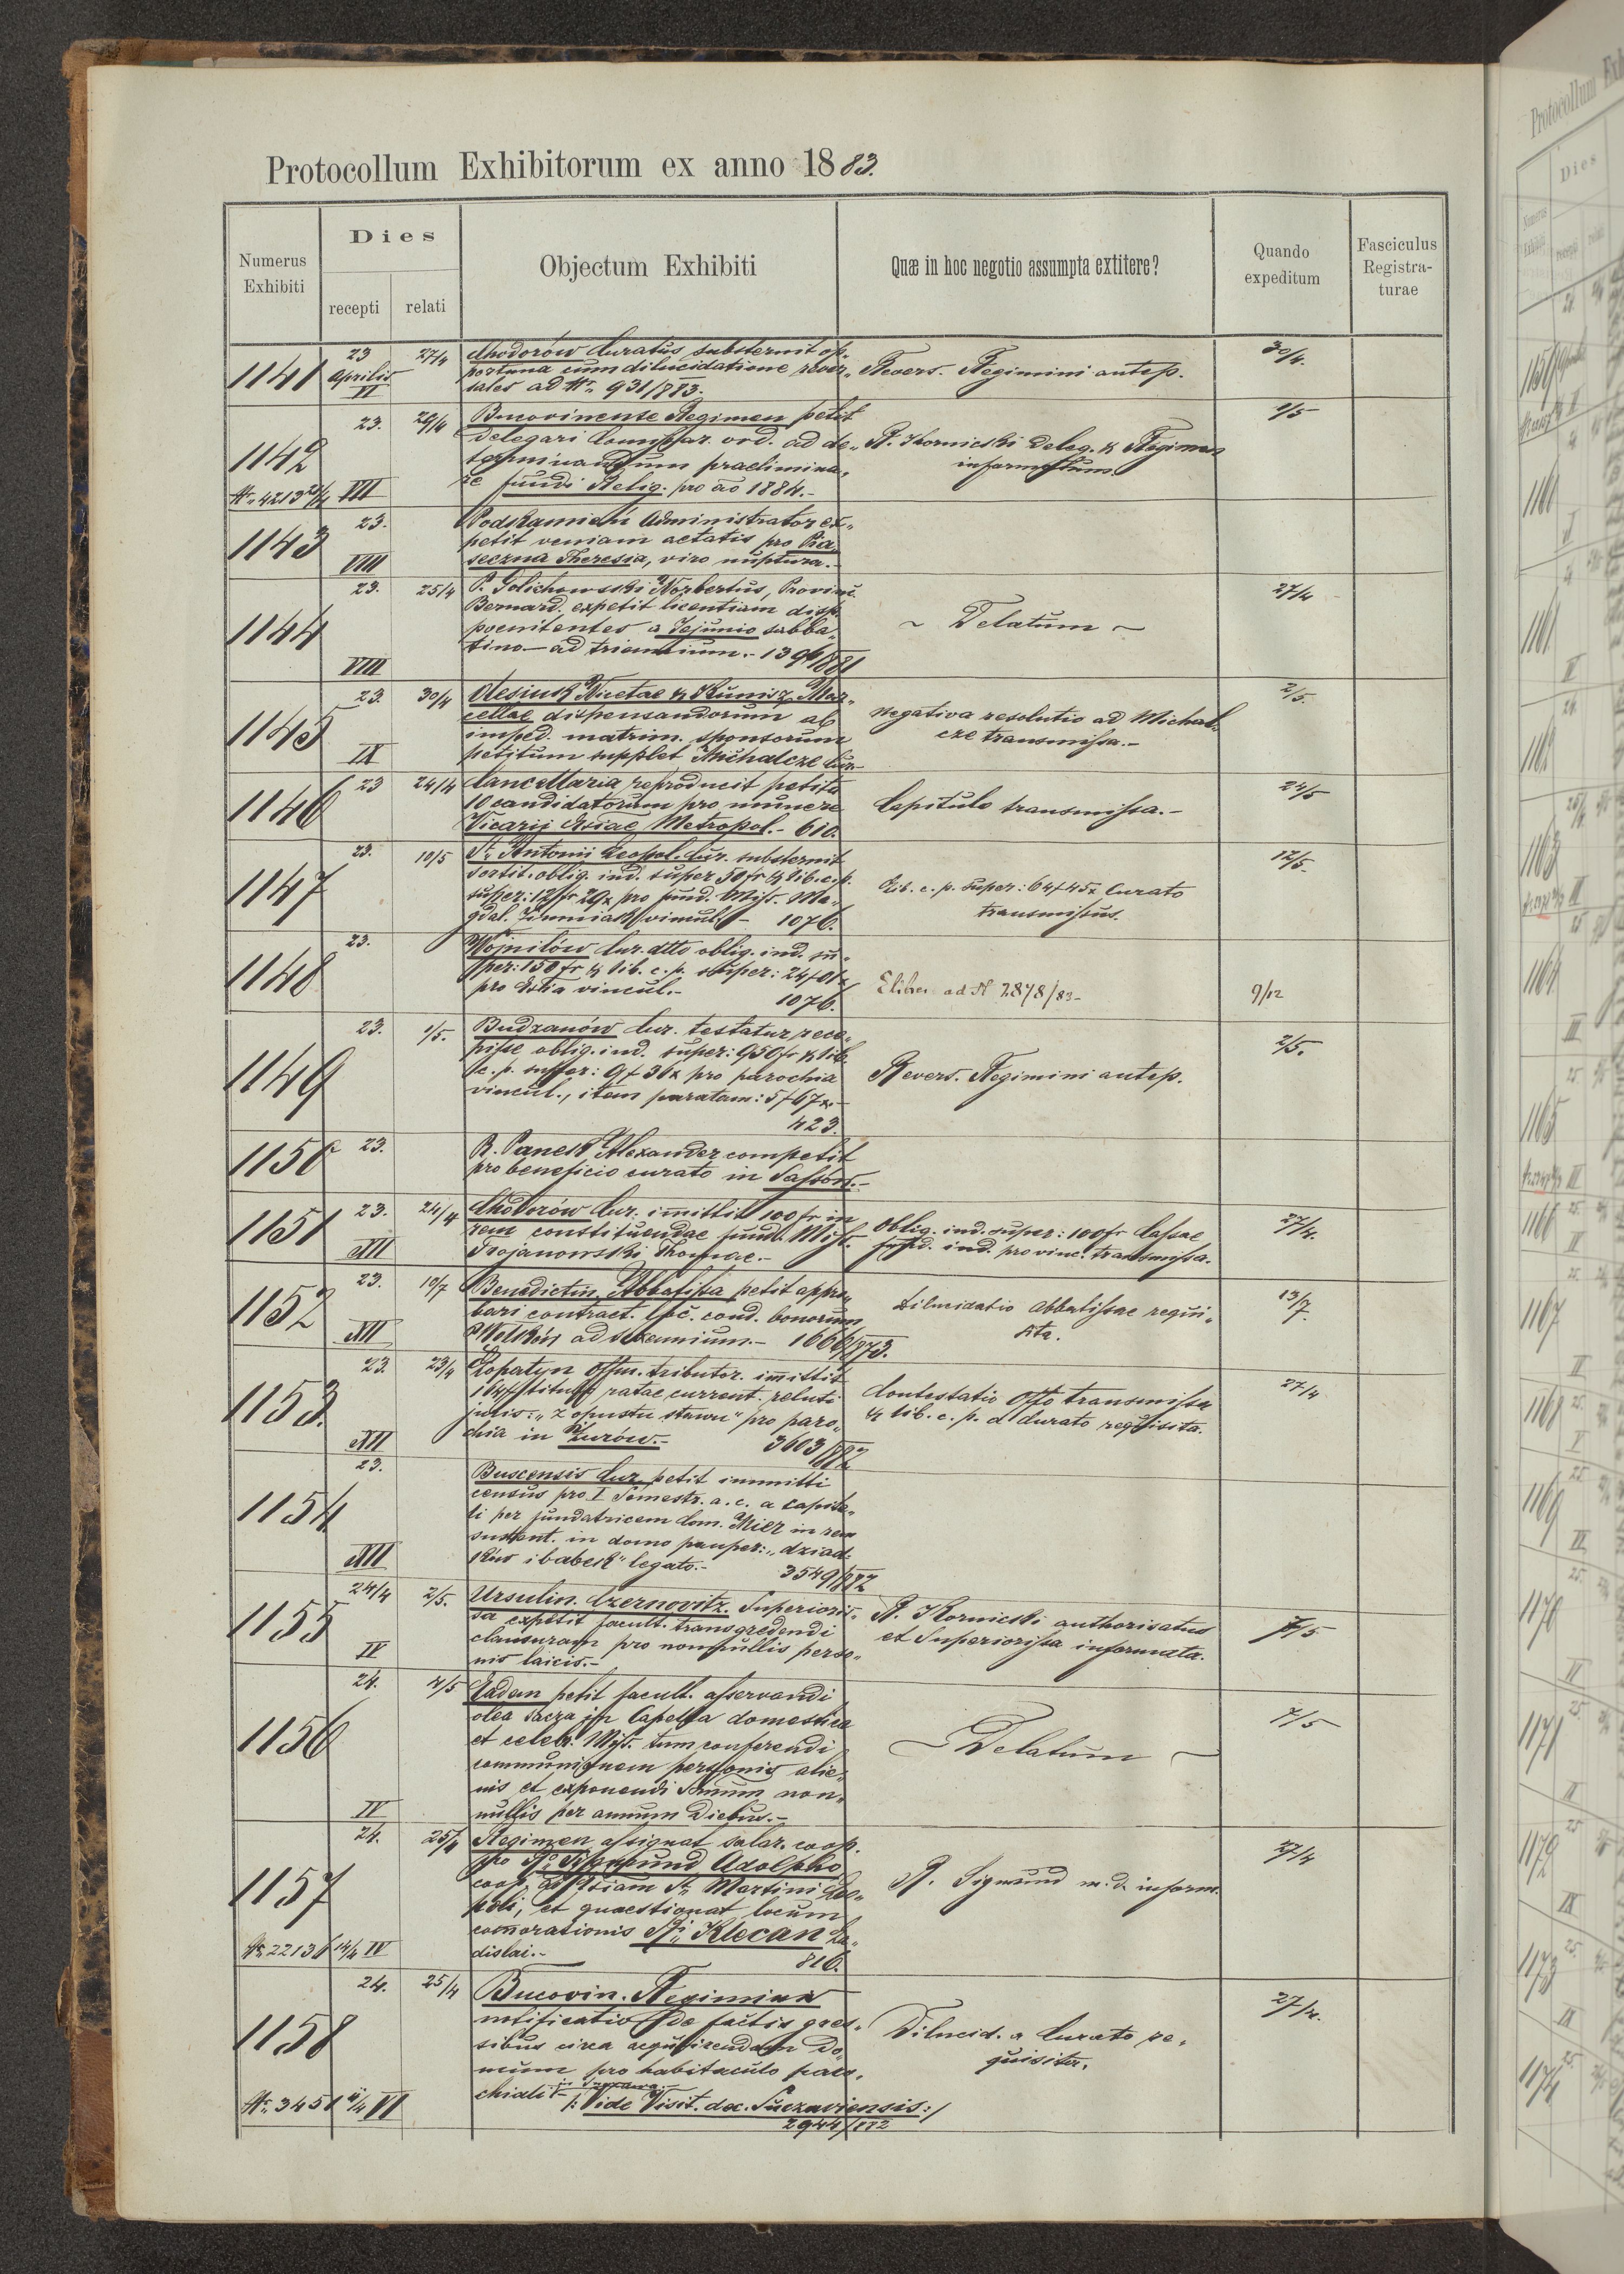 Protocollum Exhibitorum ex anno 1883.
Numerus Exhibiti
Dies
recepti
relati
Objectum Exhibiti
Quæ in hoc negotio assumpta extitere?
Quando expeditum
Fasciculus Registra-
turae
1141
23 Aprilis
II
27/4
Chodorów Curatus substernit op„
portuna cum dilucidatione rever„
sales ad Nr. 931/883.
Revers. Regimini antep.
30/4.
1142
Nr. 4213
23.
VIII
29/4
Bucovinense Regimen petit
delegari Commissar. ord. ad de„
terminandum praelimina„
re fundi Relig. pro ao 1884.-
R. Kornicki deleg. & Regimen
informatum
1/5
1143
23.
VIII
Podkamień Administrator ex„
petit veniam aetatis pro Pia„
seczna Theresia, viro nuptura.-
1144
23.
VIII
25/4
P. Golichowski Norbertus, Provinc.
Bernard. expetit licentiam disp.
poenitentes a Jejunio sabba„
tino - ad triennium.- 1396/881
~ Delatum ~
27/4
1145
23.
IX
30/4
Olesiuk Nicetae & Kunisz Mar„
cellae dispensandorum ab
imped. matrim. sponsorum
petitum supplet Michalcze Cur.-
negativa resolutio ad Michal„
cze transmissa.-
2/5.
1146
23
24/4
Cancellaria reproducit petita
10 candidatorum pro munere
Vicarij Ecsiae Metropol.- 610.
Capitulo transmissa.-
24/5
1147
23.
10/5
St. Antonii Leopol. Cur. substernit
sortit. oblig. ind. super 50 fr & lib. c. p.
super: 12 fr 29x pro fund. Miss. Ma„
gdal. Zimniak vincul.- 1076.
Lib. c. p. super: 64 f 45x Curato
transmissus.
12/5.
1148
23.
Wojniłów Cur. dtto oblig. ind. su„
per: 150 fr & lib. c. p. super: 24 f 01x
pro Ecsia vincul.-
1076.
ad N 2878/83-
9/12
1149
23.
1/5.
Budzanów Cur. testatur rece„
pisse oblig. ind. super: 950 fr & lib.
c. p. super: 9 f 36x pro parochia
vincul., item paratam: 5 f 67x.-
423.
Revers. Regimini antep.
2/5.
1150
23.
R. Panek Alexander competit
pro beneficio curato in Sassów.-
1151
23.
XII
24/4
Chodorów Cur. immittit 100 fr in
rem constituendae fund. Miss.
Trojanowski Thomae.-
Oblig. ind. super: 100 fr Cassae
fund. ind. pro vinc. transmissa.
27/4.
1152
23.
XII
10/7
Benedictin. Abbatissa petit appro„
bari contract. loc. cond. bonorum
Wolków ad sexennium.- 1666/873.
Dilucidatio abbatissae requi„
sita.
13/7.
1153.
23.
XII
23/4
Łopatyn Offm. tributor. immittit
164 f titulo ratae current. reluti
juris: „z opustu stawu" pro paro„
chia in Żurów.-
3603/882
Contestatio Offo transmissa
& lib. c. p. a Curato requisita.
27/4
1154
23.
XII
Buscensis Cur. petit immitti
census pro I Semestr. a. c. a capita„
li per fundatricem Com. Mier in rem
sustent. in domo pauper: „dziad„
ków i babek" legato.-
3549/882
1155
24/4
IV
2/5.
Ursulin. Czernovitz. Superioris„
sa expetit facult. transgredendi
clausuram pro nonnullis perso„
nis laicis.-
R. Kornicki authorisatus
et Superiorissa informata.
7/5
1156
24.
IV
4/5
Eadem petit facult. asservandi
olea sacra in Capella domestica
et celebr. Miss. tum conferendi
communionem personis alie„
nis et exponendi Ssmum non„
nullis per annum diebus.-
Delatum ~
7/5
1157
Nr. 22136 14/4
24.
IV
25/4
Regimen assignat salar. coop.
pro Ro Sigmund Adolpho
coop. ad Ecsiam St. Martini Leo„
poli, et quaestionat locum
commorationis Ri Klecan La„
dislai.-
816.
R. Sigmund m. d. inform.
27/4
1158
Nr. 3451 VI
24.
25/4
Bucovin. Regiminis
notificatio de factis gres„
sibus circa acquirendam do„
mum pro habitaculo paro„
chiali
/: Vide Visit. dec. Suczaviensis:/
2944/882
Dilucid. a Curato re„
quisita.
27/4.